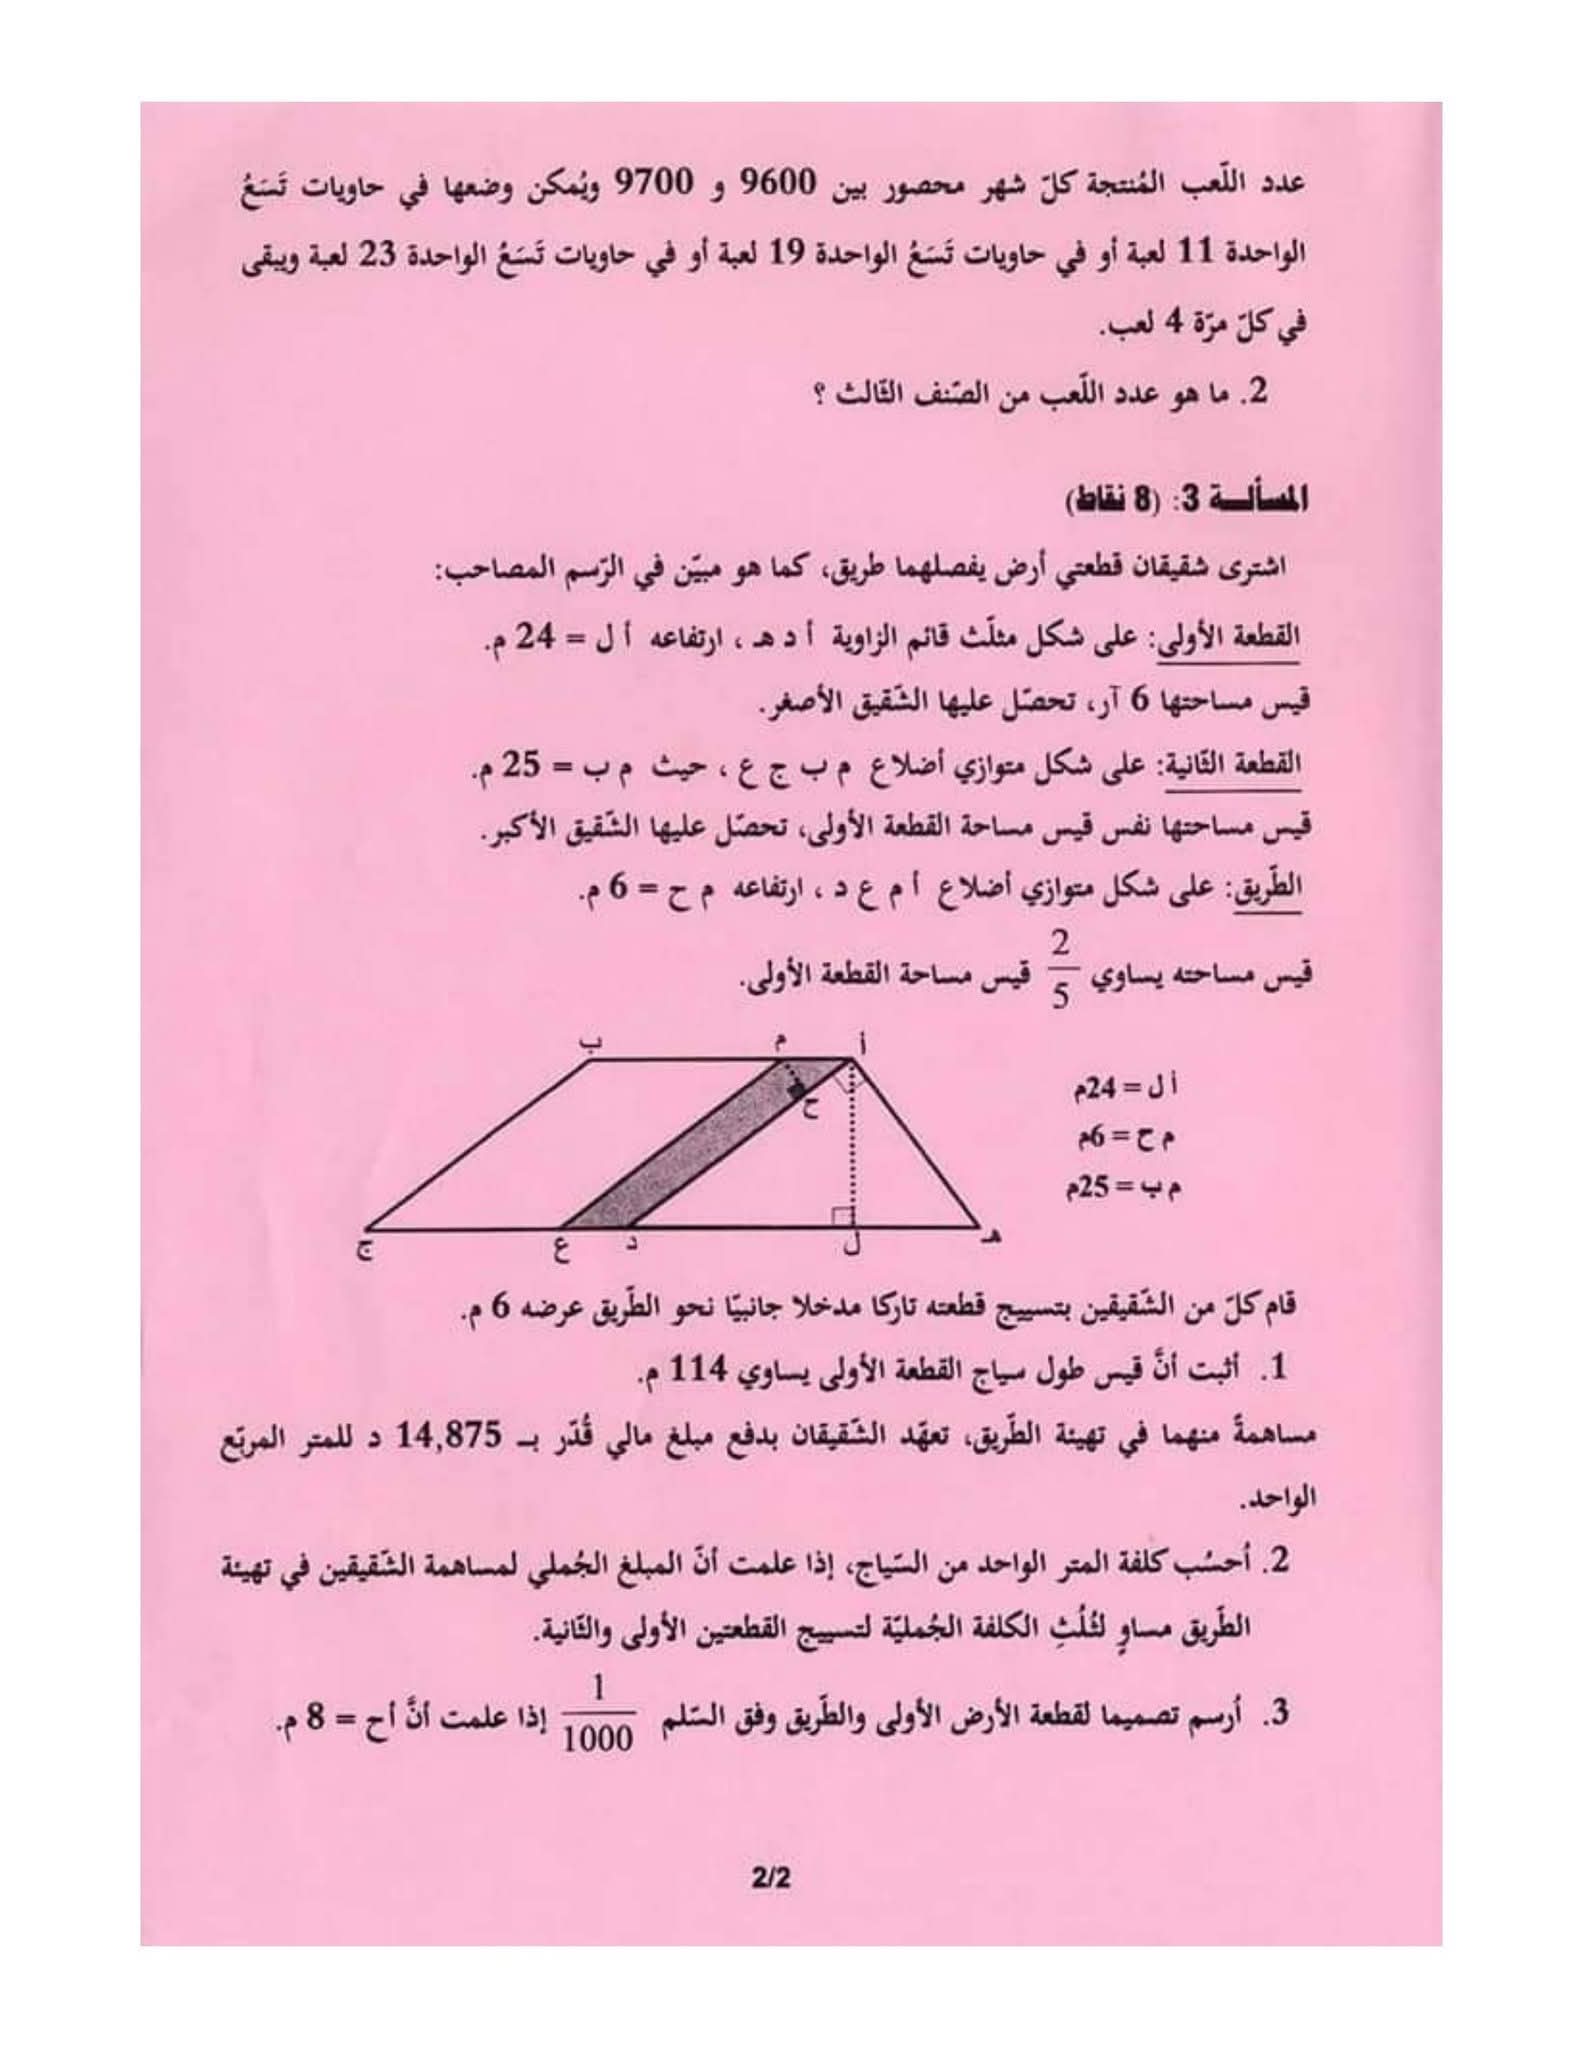 عدد اللّعب المُنتجة كلّ شهر محصور بين 9600 و 9700 ويُمكن وضعها في حاويات تَسَعُ
الواحدة 11 لعبة أو في حاويات تَسَعُ الواحدة 19 لعبة أو في حاويات تَسَعُ الواحدة 23 لعبة ويبقى
في كلّ مرّة 4 لعب.
2. ما هو عدد اللّعب من الصّنف الثّالث ؟
المسألـــة 3: (8 نقاط)
اشترى شقيقان قطعتي أرض يفصلهما طريق، كما هو مبيّن في الرّسم المصاحب:
القطعة الأولى: على شكل مثلّث قائم الزاوية أ د هـ ، ارتفاعه أ ل = 24 م.
قيس مساحتها 6 آر، تحصّل عليها الشّقيق الأصغر.
القطعة الثّانية: على شكل متوازي أضلاع م ب ج ع ، حيث م ب = 25 م.
قيس مساحتها نفس قيس مساحة القطعة الأولى، تحصّل عليها الشّقيق الأكبر.
الطّريق: على شكل متوازي أضلاع أ م ع د ، ارتفاعه م ح = 6 م.
قيس مساحته يساوي 2/5 قيس مساحة القطعة الأولى.
ب م أ
أ ل = 24م
ح
م ح = 6م
م ب = 25م
ج ع د ل هـ
قام كلّ من الشّقيقين بتسييج قطعته تاركا مدخلا جانبيّا نحو الطّريق عرضه 6 م.
1. أثبت أنَّ قيس طول سياج القطعة الأولى يساوي 114 م.
مساهمةً منهما في تهيئة الطّريق، تعهّد الشّقيقان بدفع مبلغ مالي قُدّر بـ 14,875 د للمتر المربّع
الواحد.
2. اُحسُب كلفة المتر الواحد من السّياج، إذا علمت أنّ المبلغ الجُملي لمساهمة الشّقيقين في تهيئة
الطّريق مساوٍ لثُلُثِ الكلفة الجُمليّة لتسييج القطعتين الأولى والثّانية.
3. اُرسم تصميما لقطعة الأرض الأولى والطّريق وفق السّلم 1/1000 إذا علمت أنَّ أح = 8 م.
2/2